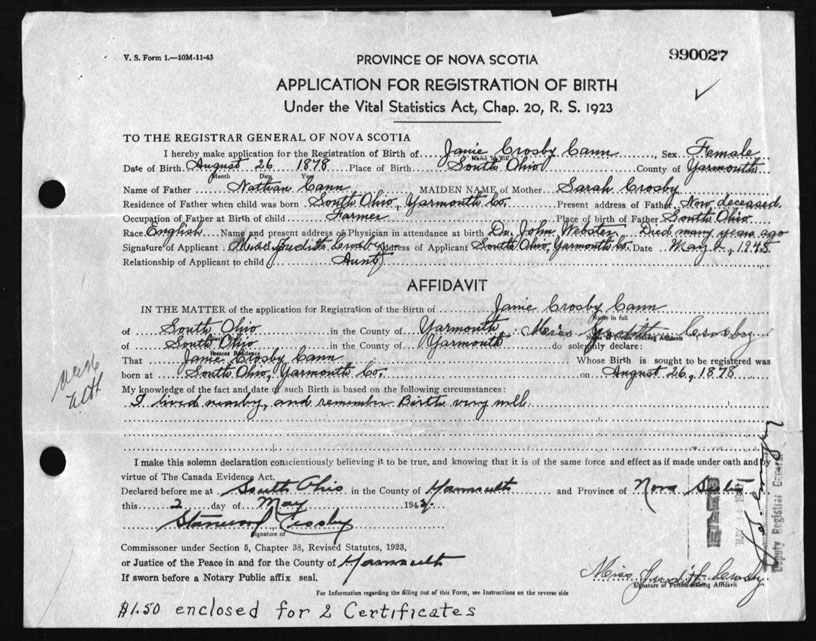 V. S. Form 1.—10M-11-43
PROVINCE OF NOVA SCOTIA
990027
APPLICATION FOR REGISTRATION OF BIRTH
Under the Vital Statistics Act, Chap. 20, R. S. 1923
TO THE REGISTRAR GENERAL OF NOVA SCOTIA
I hereby make application for the Registration of Birth of Janie Crosby Cann, Sex Female
Date of Birth August 26 1878 Place of Birth South Ohio County of Yarmouth
Month Date Year
Name of Father Nathan Cann MAIDEN NAME of Mother Sarah Crosby
Residence of Father when child was born South Ohio, Yarmouth Co. Present address of Father Now deceased
Occupation of Father at Birth of child Farmer Place of birth of Father South Ohio
Race English Name and present address of Physician in attendance at birth Dr. John Webster Died many years ago
Signature of Applicant Miss Judith Crosby Address of Applicant South Ohio, Yarmouth Co. Date May 2, 1945
Relationship of Applicant to child Aunt
AFFIDAVIT
IN THE MATTER of the application for Registration of the Birth of Janie Crosby Cann
Name in full
of South Ohio in the County of Yarmouth : Miss Judith Crosby
Name of Person Making Affidavit
of South Ohio in the County of Yarmouth do solemnly declare:
Present Residence
That Janie Crosby Cann Whose Birth is sought to be registered was
born at South Ohio, Yarmouth Co. on August 26, 1878
My knowledge of the fact and date of such Birth is based on the following circumstances:
I lived nearby, and remember Birth very well
I make this solemn declaration conscientiously believing it to be true, and knowing that it is of the same force and effect as if made under oath and by
virtue of The Canada Evidence Act.
Declared before me at South Ohio in the County of Yarmouth and Province of Nova Scotia
this 2 day of May 194
Stanwood Crosby
Signature of
Commissioner under Section 5, Chapter 38, Revised Statutes, 1923,
or Justice of the Peace in and for the County of Yarmouth
If sworn before a Notary Public affix seal.
Miss Judith Crosby
Signature of Person Making Affidavit
Deputy Registrar General
For Information regarding the filling out of this Form, see Instructions on the reverse side
$1.50 enclosed for 2 Certificates